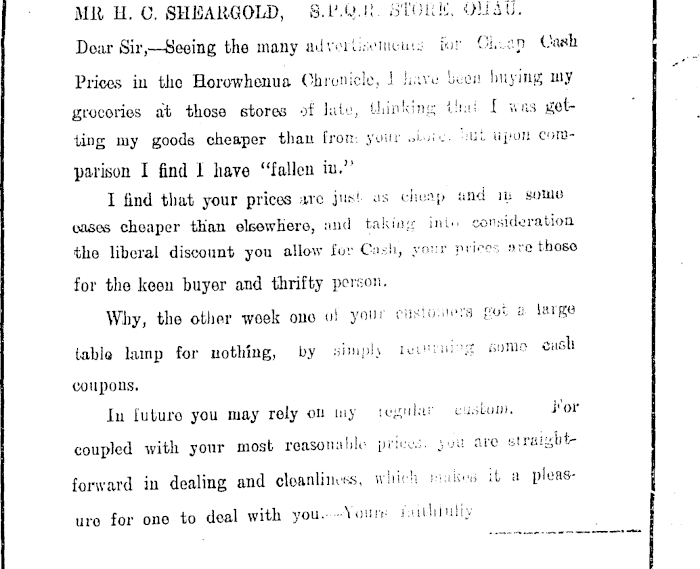 MR H. C. SHEARGOLD, S.P.Q.R. STORE, OHAU.
Dear Sir,—Seeing the many advertisements for Cheap Cash
Prices in the Horowhenua Chronicle, I have been buying my
groceries at those stores of late, thinking that I was get-
ting my goods cheaper than from your store, but upon com-
parison I find I have "fallen in."
I find that your prices are just as cheap and in some
cases cheaper than elsewhere, and taking into consideration
the liberal discount you allow for Cash, your prices are those
for the keen buyer and thrifty person.
Why, the other week one of your customers got a large
table lamp for nothing, by simply returning some cash
coupons.
In future you may rely on my regular custom. For
coupled with your most reasonable prices, you are straight-
forward in dealing and cleanliness, which makes it a pleas-
ure for one to deal with you.—Yours faithfully